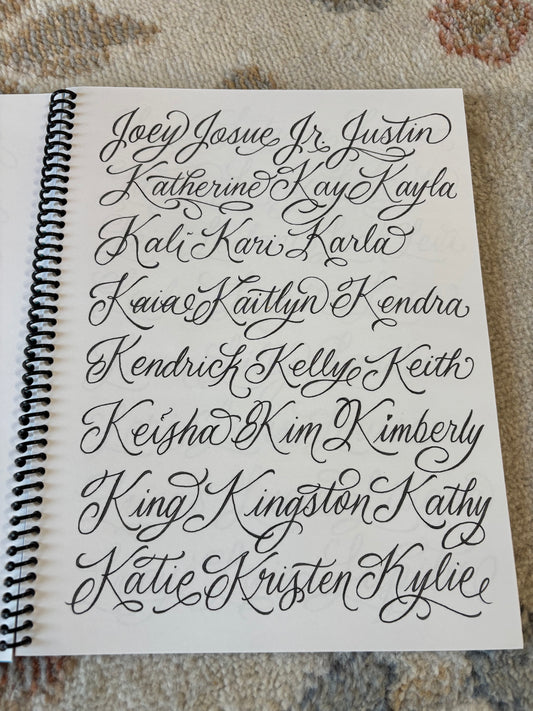 Joey Josue Jr. Justin
Katherine Kay Kayla
Kali Kari Karla
Kaia Kaitlyn Kendra
Kendrick Kelly Keith
Keisha Kim Kimberly
King Kingston Kathy
Katie Kristen Kylie